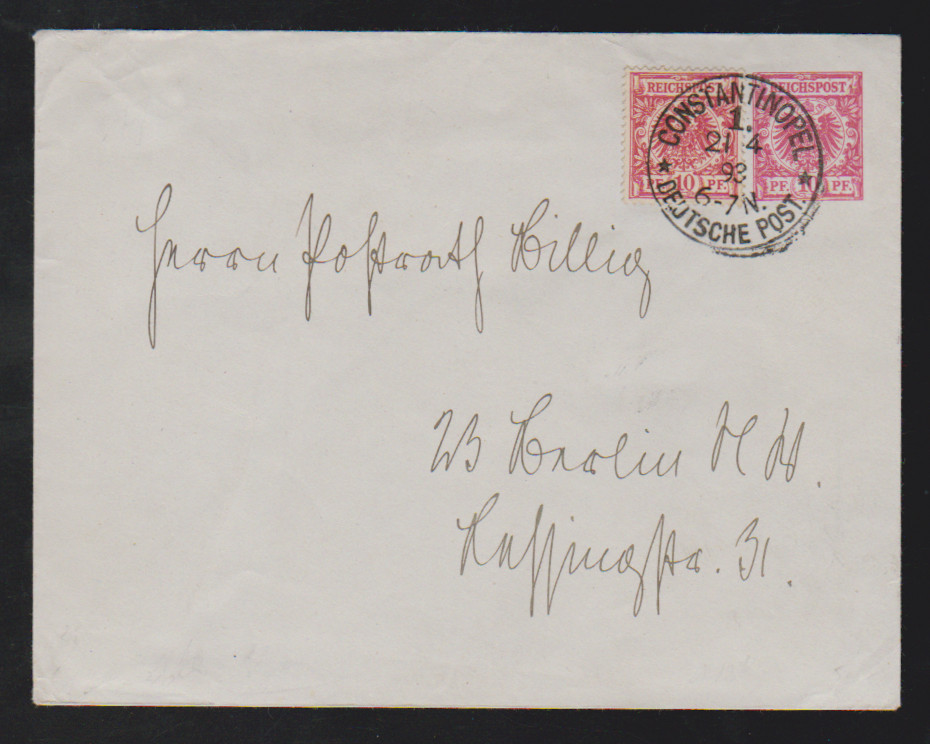 REICHSPOST REICHSPOST
CONSTANTINOPEL
1.
21 4
93
6-7 N.
PF. 10 PF. PF. 10 PF.
DEUTSCHE POST.
Herrn Postrath Billig
Berlin N W.
Lessingstr. 31.